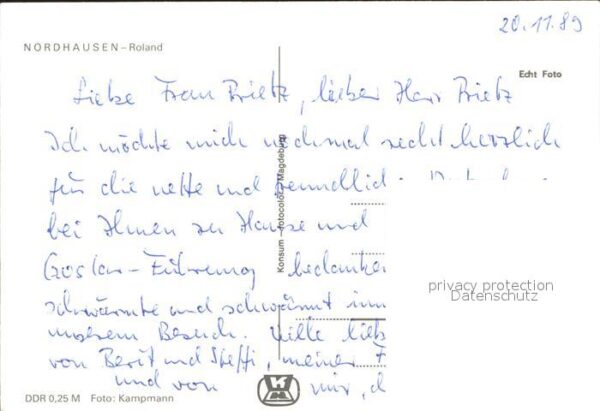 20.11.89
NORDHAUSEN – Roland
Echt Foto
Liebe Frau Prietz, lieber Herr Prietz
Ich möchte mich nochmal recht herzlich
für die nette und freundlich
bei Ihnen zu Hause und
Goslar-Führung bedanken
schwärmte und schwärmt imm
unserem Besuch. Viele lieb
von Berit und Steffi, meiner F
und von mir, d
Konsum - Fotocolor - Magdeburg
privacy protection
Datenschutz
DDR 0,25 M Foto: Kampmann